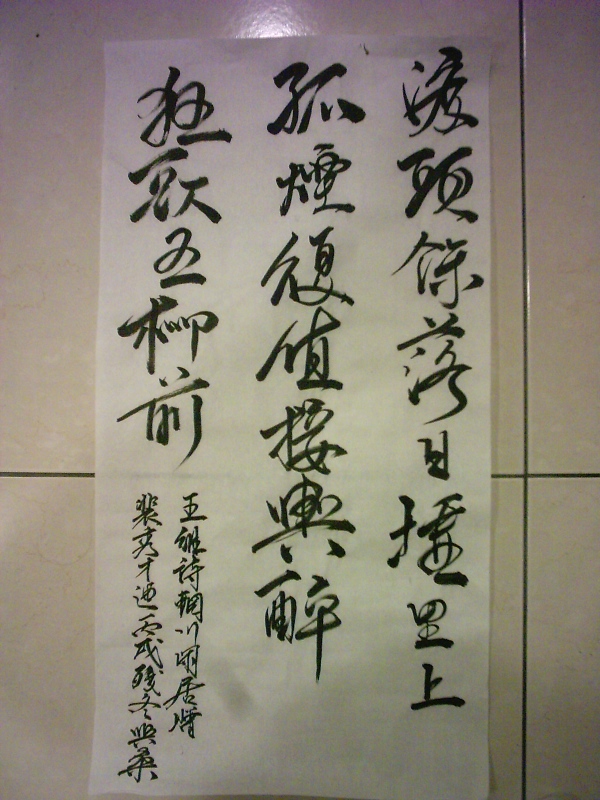 渡頭餘落日墟里上
孤煙復值接輿醉
狂歌五柳前
王維詩輞川閒居贈
裴秀才迪丙戌殘冬